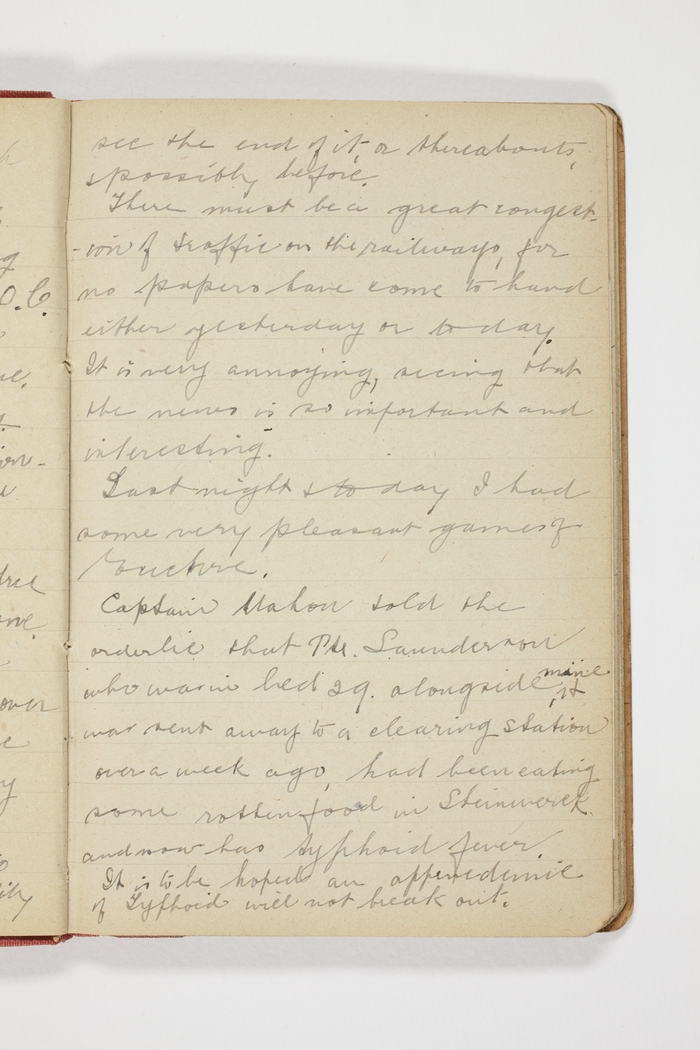 see the end of it, or thereabouts,
& possibly before.
There must be a great congest-
-ion of traffic on the railways, for
no papers have come to hand
either yesterday or to day.
It is very annoying, seeing that
the news is so important and
interesting.
Last night & to day I had
some very pleasant games of
Euchre.
Captain Mahon told the
orderlie that Pte. Saunderson
who was in bed 29. alongside mine, &
was sent away to a clearing station
over a week ago, had been eating
some rotten food in Steinwerck
and now has typhoid fever.
It is to be hoped an appendemic
of Typhoid will not break out.
O.C.
over